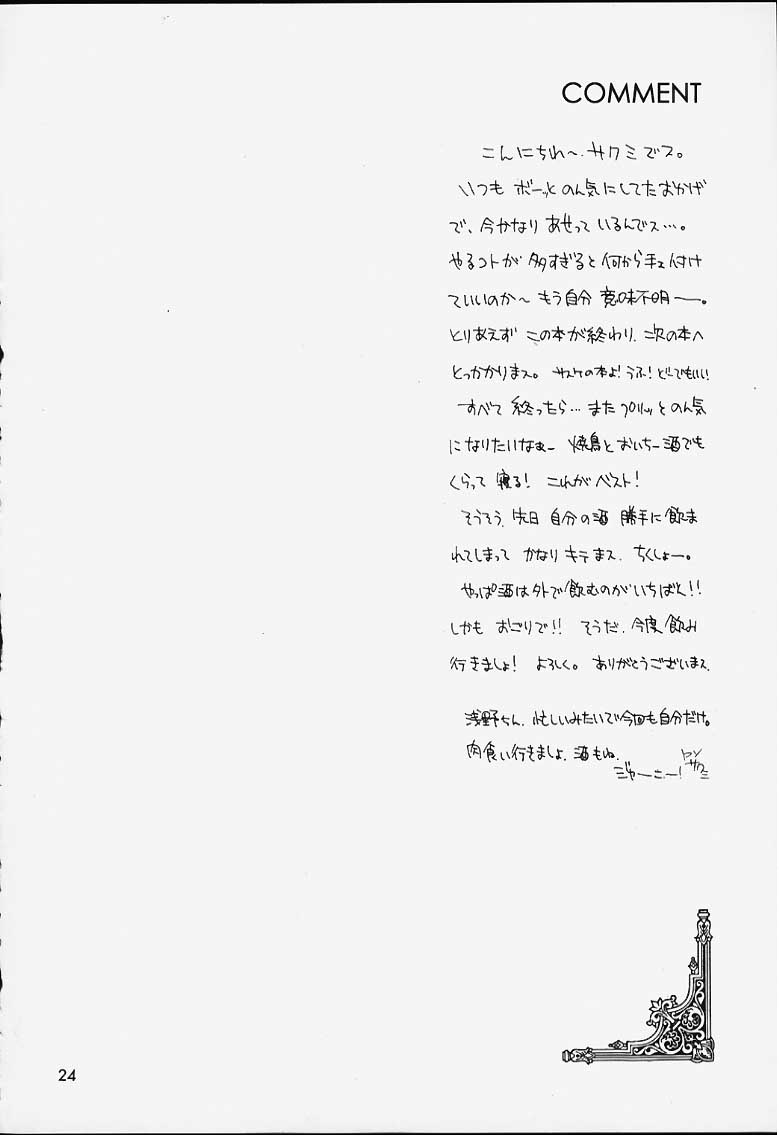 COMMENT
こんにちわ〜.サクミでス。
いつも ボーッと のん気にしてたおかげ
で、今かなり あせって いるんでス…。
やるコトが 多すぎると 何から手を付け
ていいのか〜 もう自分 意味不明ー。
とりあえず この本が終わり. 次の本へ
とっかかりまス。 サスケの本よ!うふ!どーでもいい
すべて 終ったら… また プリッ とのん気
になりたいなぁー 焼鳥と おいちー酒でも
くらって 寝る! これが ベスト!
そうそう. 先日 自分の酒 勝手に飲ま
れてしまって かなり キテ まス. ちくしょー。
やっぱ酒は外で飲むのがいちばん!!
しかも おごりで!! そうだ. 今度飲み
行きましょ! よろしく。 ありがとうございまス.
浅野ちん. 忙しいみたいで今回も自分だけ。
肉食い行きましょ. 酒もね.
じゃーにー!
サクミ
24